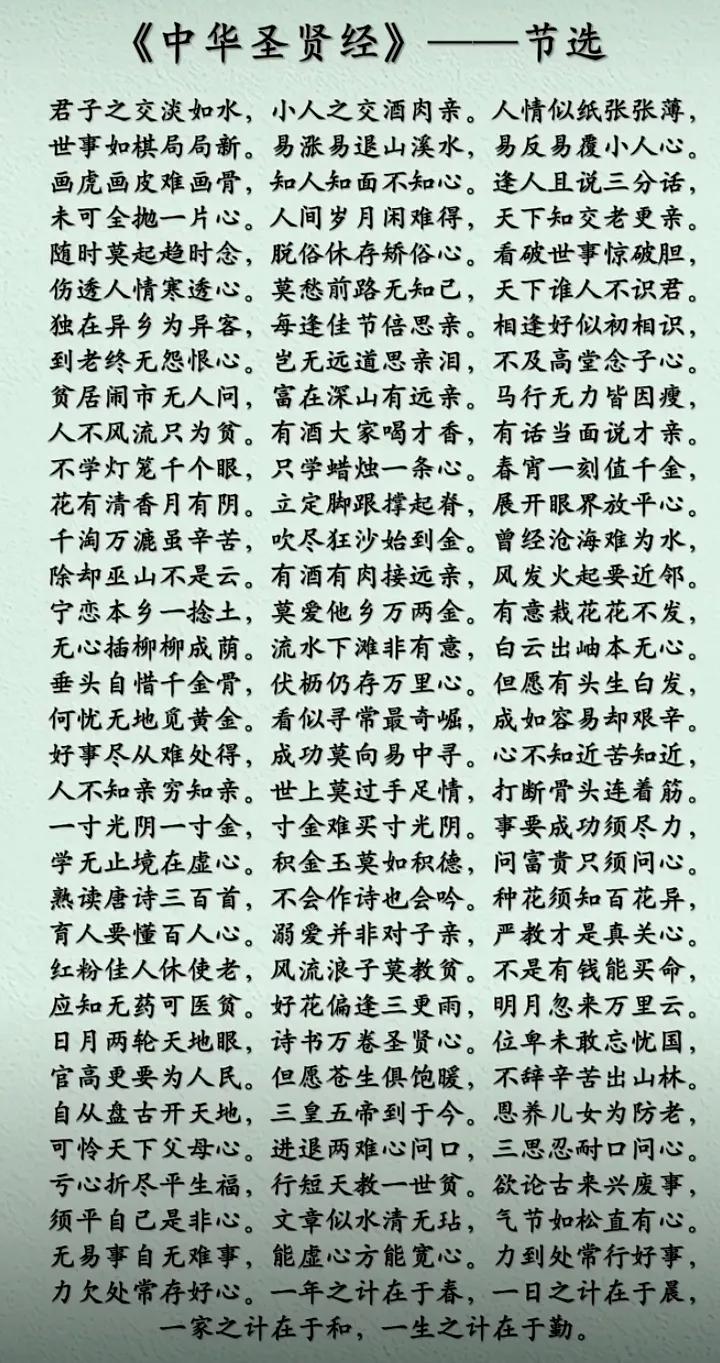 《中华圣贤经》——节选
君子之交淡如水，小人之交酒肉亲。人情似纸张张薄，
世事如棋局局新。易涨易退山溪水，易反易覆小人心。
画虎画皮难画骨，知人知面不知心。逢人且说三分话，
未可全抛一片心。人间岁月闲难得，天下知交老更亲。
随时莫起趋时念，脱俗休存矫俗心。看破世事惊破胆，
伤透人情寒透心。莫愁前路无知己，天下谁人不识君。
独在异乡为异客，每逢佳节倍思亲。相逢好似初相识，
到老终无怨恨心。岂无远道思亲泪，不及高堂念子心。
贫居闹市无人问，富在深山有远亲。马行无力皆因瘦，
人不风流只为贫。有酒大家喝才香，有话当面说才亲。
不学灯笼千个眼，只学蜡烛一条心。春宵一刻值千金，
花有清香月有阴。立定脚跟撑起脊，展开眼界放平心。
千淘万漉虽辛苦，吹尽狂沙始到金。曾经沧海难为水，
除却巫山不是云。有酒有肉接远亲，风发火起要近邻。
宁恋本乡一捻土，莫爱他乡万两金。有意栽花花不发，
无心插柳柳成荫。流水下滩非有意，白云出岫本无心。
垂头自惜千金骨，伏枥仍存万里心。但愿有头生白发，
何忧无地觅黄金。看似寻常最奇崛，成如容易却艰辛。
好事尽从难处得，成功莫向易中寻。心不知近苦知近，
人不知亲穷知亲。世上莫过手足情，打断骨头连着筋。
一寸光阴一寸金，寸金难买寸光阴。事要成功须尽力，
学无止境在虚心。积金玉莫如积德，问富贵只须问心。
熟读唐诗三百首，不会作诗也会吟。种花须知百花异，
育人要懂百人心。溺爱并非对子亲，严教才是真关心。
红粉佳人休使老，风流浪子莫教贫。不是有钱能买命，
应知无药可医贫。好花偏逢三更雨，明月忽来万里云。
日月两轮天地眼，诗书万卷圣贤心。位卑未敢忘忧国，
官高更要为人民。但愿苍生俱饱暖，不辞辛苦出山林。
自从盘古开天地，三皇五帝到于今。恩养儿女为防老，
可怜天下父母心。进退两难心问口，三思忍耐口问心。
亏心折尽平生福，行短天教一世贫。欲论古来兴废事，
须平自己是非心。文章似水清无玷，气节如松直有心。
无易事自无难事，能虚心方能宽心。力到处常行好事，
力欠处常存好心。一年之计在于春，一日之计在于晨，
一家之计在于和，一生之计在于勤。